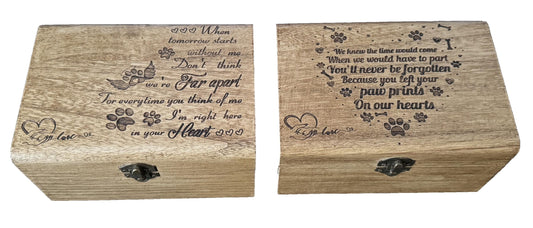 When
tomorrow starts
without me
Don't think
we're Far apart
For everytime you think of me
I'm right here
in your Heart
We knew the time would come
When we would have to part
You'll never be forgotten
Because you left your
paw prints
On our hearts